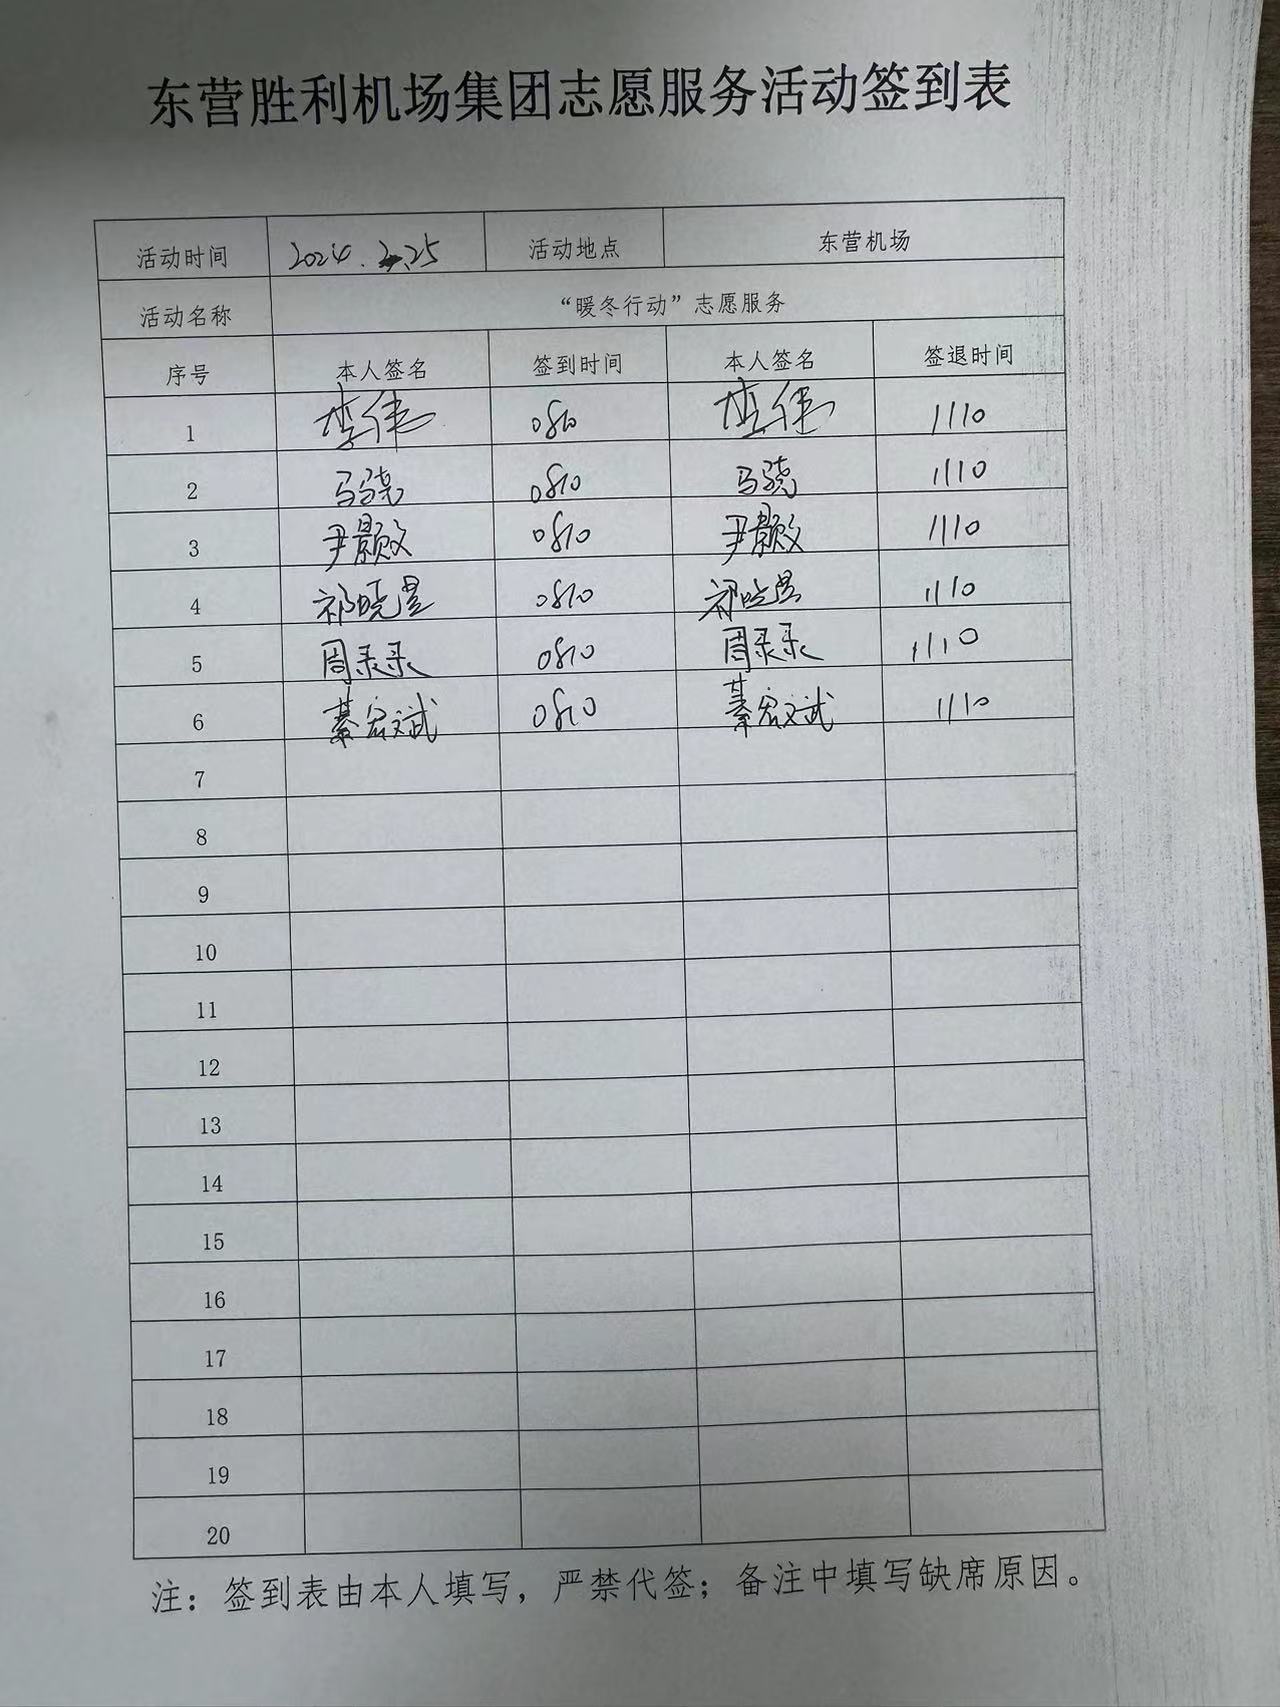 东营胜利机场集团志愿服务活动签到表
活动时间 2024.2.25 活动地点 东营机场
活动名称 “暖冬行动”志愿服务
序号 本人签名 签到时间 本人签名 签退时间
1 李伟 0810 李伟 1110
2 马骁 0810 马骁 1110
3 尹颢 0810 尹颢 1110
4 祁晓星 0810 祁晓星 1110
5 周录录 0810 周录录 1110
6 綦宏斌 0810 綦宏斌 1110
7
8
9
10
11
12
13
14
15
16
17
18
19
20
注：签到表由本人填写，严禁代签；备注中填写缺席原因。